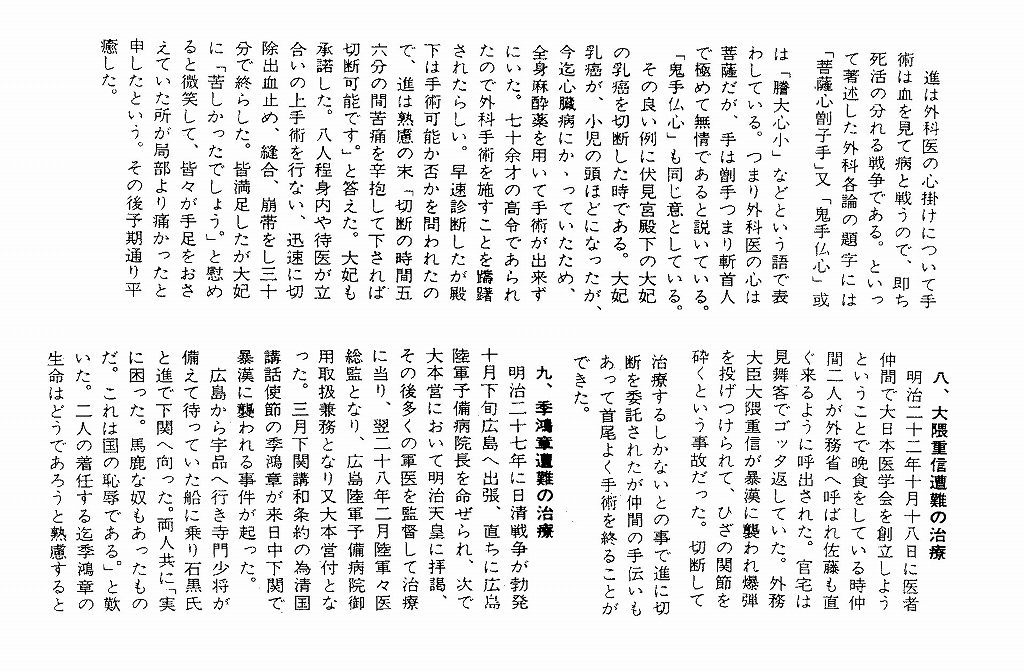 進は外科医の心掛けについて手
術は血を見て病と戦うので、即ち
死活の分れる戦争である。といっ
て著述した外科各論の題字には
「菩薩心劊子手」又「鬼手仏心」或
は「膽大心小」などという語で表
わしている。つまり外科医の心は
菩薩だが、手は劊手つまり斬首人
で極めて無情であると説いている。
「鬼手仏心」も同じ意としている。
その良い例に伏見宮殿下の大妃
の乳癌を切断した時である。大妃
乳癌が、小児の頭ほどになったが、
今迄心臓病にかゝっていたため、
全身麻酔薬を用いて手術が出来ず
にいた。七十余才の高令であられ
たので外科手術を施すことを躊躇
されたらしい。早速診断したが殿
下は手術可能か否かを問われたの
で、進は熟慮の末「切断の時間五
六分の間苦痛を辛抱して下されば
切断可能です。」と答えた。大妃も
承諾した。八人程身内や待医が立
合いの上手術を行ない、迅速に切
除出血止め、縫合、崩帯をし三十
分で終らした。皆満足したが大妃
に「苦しかったでしょう。」と慰め
ると微笑して、皆々が手足をおさ
えていた所が局部より痛かったと
申したという。その後予期通り平
癒した。
八、大隈重信遭難の治療
明治二十二年十月十八日に医者
仲間で大日本医学会を創立しよう
ということで晩食をしている時仲
間二人が外務省へ呼ばれ佐藤も直
ぐ来るように呼出された。官宅は
見舞客でゴッタ返していた。外務
大臣大隈重信が暴漢に襲われ爆弾
を投げつけられて、ひざの関節を
砕くという事故だった。切断して
治療するしかないとの事で進に切
断を委託されたが仲間の手伝いも
あって首尾よく手術を終ることが
できた。
九、季鴻章遭難の治療
明治二十七年に日清戦争が勃発
十月下旬広島へ出張、直ちに広島
陸軍予備病院長を命ぜられ、次で
大本営において明治天皇に拝謁、
その後多くの軍医を監督して治療
に当り、翌二十八年二月陸軍々医
総監となり、広島陸軍予備病院御
用取扱兼務となり又大本営付とな
った。三月下関講和条約の為清国
講話使節の季鴻章が来日中下関で
暴漢に襲われる事件が起った。
広島から宇品へ行き寺門少将が
備えて待っていた船に乗り石黒氏
と進で下関へ向った。両人共に「実
に困った。馬鹿な奴もあったもの
だ。これは国の恥辱である。」と歎
いた。二人の着任する迄季鴻章の
生命はどうであろうと熟慮すると